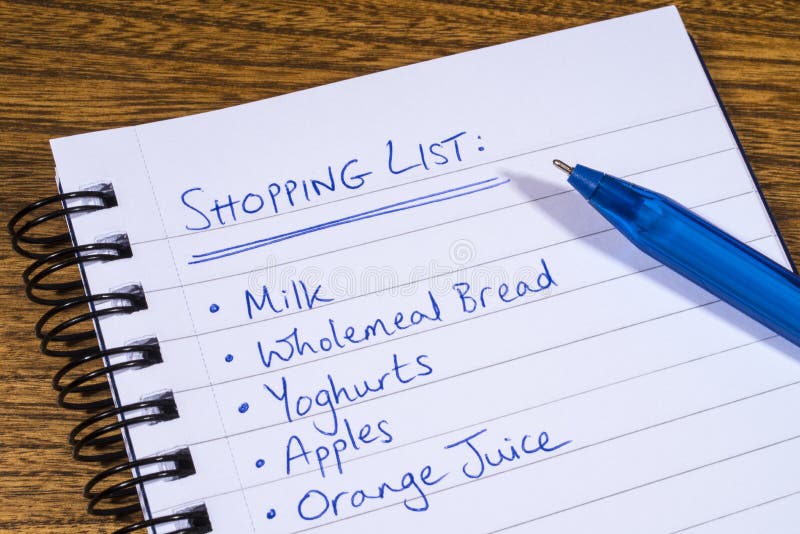 SHOPPING LIST:
• Milk
• Wholemeal Bread
• Yoghurts
• Apples
• Orange Juice
dreamstime